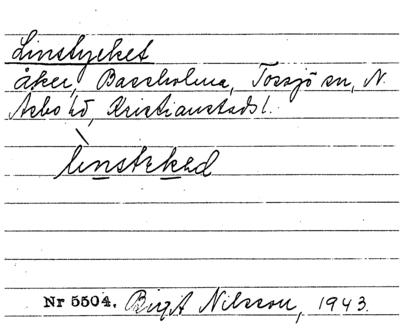 Linstycket
åker, Bassholma, Tossjö sn, N.
Åsbo hd, Kristianstads l.
Nr 5504. Birgit Nilsson, 1943.